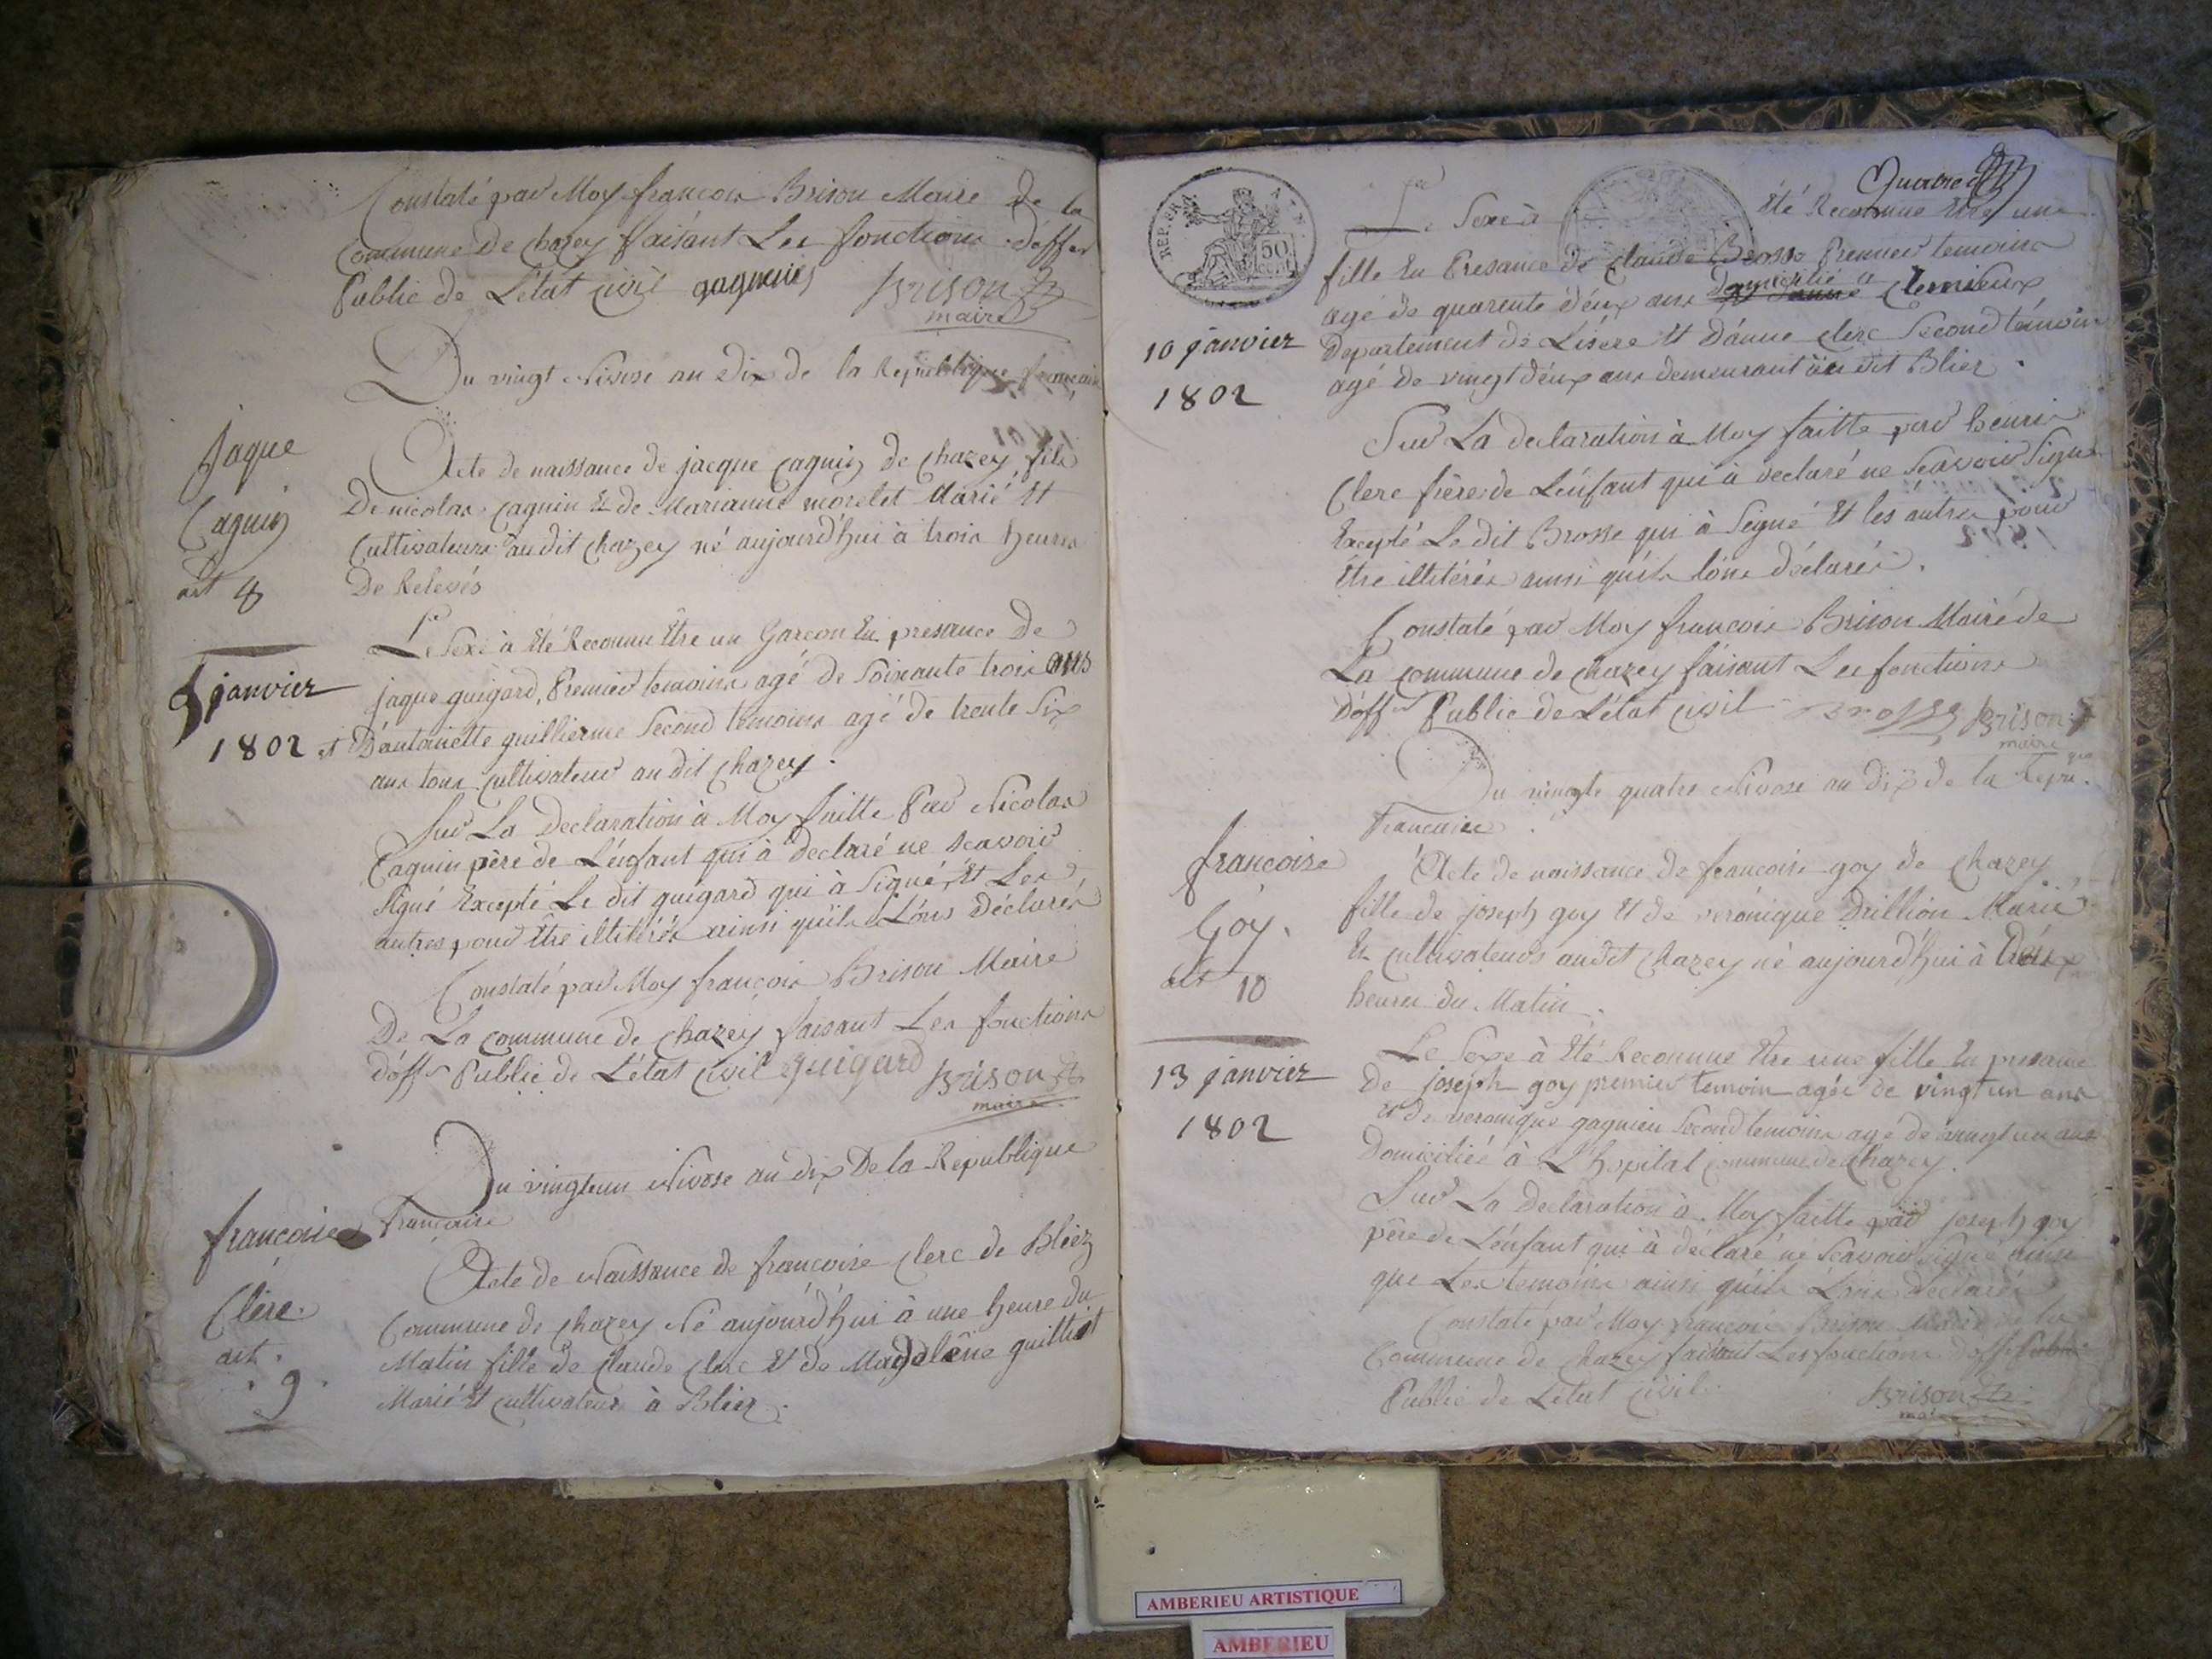 Constaté par Moy françois Brison Maire De la
Commune De chazey faisant Les fonctions d'offer
Public de L'état civil gagnieus Brison
maire
Du vingt Nivose an Dix de la Republique francaise
Jaque
Caguin
art 8
Acte de naissance de jacque caguin de chazey fils
De nicolas caguin Et de Marianne morelet Marié Et
Cultivateurs au dit chazey né aujourd'hui à trois heures
De Relevés
5 janvier
1802
Le Sexe à Eté Reconnu Etre un Garcon En presance De
jaque guigard, Premier temoins agé de Soixante trois ans
et D'antoinette guillierme Second temoins agé de trente Six
ans tous cultivateur au dit chazey.
Sur La Declaration à Moy faitte Par Nicolas
Caguin père de L'enfant qui à declaré ne scavoir
Signé Excepté Le dit guigard qui à Signé, Et Les
autres pour Etre illitérés ainsi qu'ils L'ons Déclarés
Constaté par Moy françois Brison Maire
De La commune de chazey faisant Les fonctions
d'offer Public de L'état civil guigard Brison
maire
Du vingtun Nivose an dix De la Republique
francaise
françoise
Clere
art.
9
Acte de Naissance de françoise clerc de Bliez
Commune de chazey Né aujourd'hui à une heure du
Matin fille de claude clerc Et de Magdelêne guilliot
Marié Et cultivateur à Bliez.
REP. FRA
50
cent
Le Sexe à Eté Reconnue Etre une
fille En Presance de claude Brosse Premier temoins
agé de quarente deux ans Domicilié à
departement de L'isere Et D'anne clerc Second temoin
agé de vingt deux ans demeurant au dit Bliez.
10 janvier
1802
Sur La declaration à Moy faitte par henri
Clerc frère de L'enfant qui à declaré ne Scavoir Signe
Excepté Le dit Brosse qui à Signé Et les autres pour
Etre illitérés ainsi qu'ils l'ons déclarés.
Constaté par Moy francois Brison Maire de
La commune de chazey faisant Les fonctions
D'offer Public de L'état civil Brosse Brison
maire
Du vingte quatre Nivose an dix de la Repu.
francaise.
francoise
Goy.
art 10
Acte de naissance de francoise goy de chazey
fille de joseph goy Et de veronique Drillion Marié
Et cultivateurs audit chazey né aujourd'hui à Deux
heures du Matin.
13 janvier
1802
Le Sexe à Eté Reconnue Etre une fille En presance
De joseph goy premier temoin agée de vingt un ans
et de veronique gagnieu Second temoins agé de vingt un ans
Domiciliés à L'hopital commune de chazey.
Sur La Declaration à Moy faitte par joseph goy
père de L'enfant qui à déclaré ne Scavoir Signé ainsi
que Les temoins ainsi qu'ils L'ons déclarés
Constaté par Moy francois Brison Maire de la
Commune de chazey faisant Les fonctions d'offer
Public de L'état civil. Brison
maire
AMBERIEU ARTISTIQUE
AMBERIEU